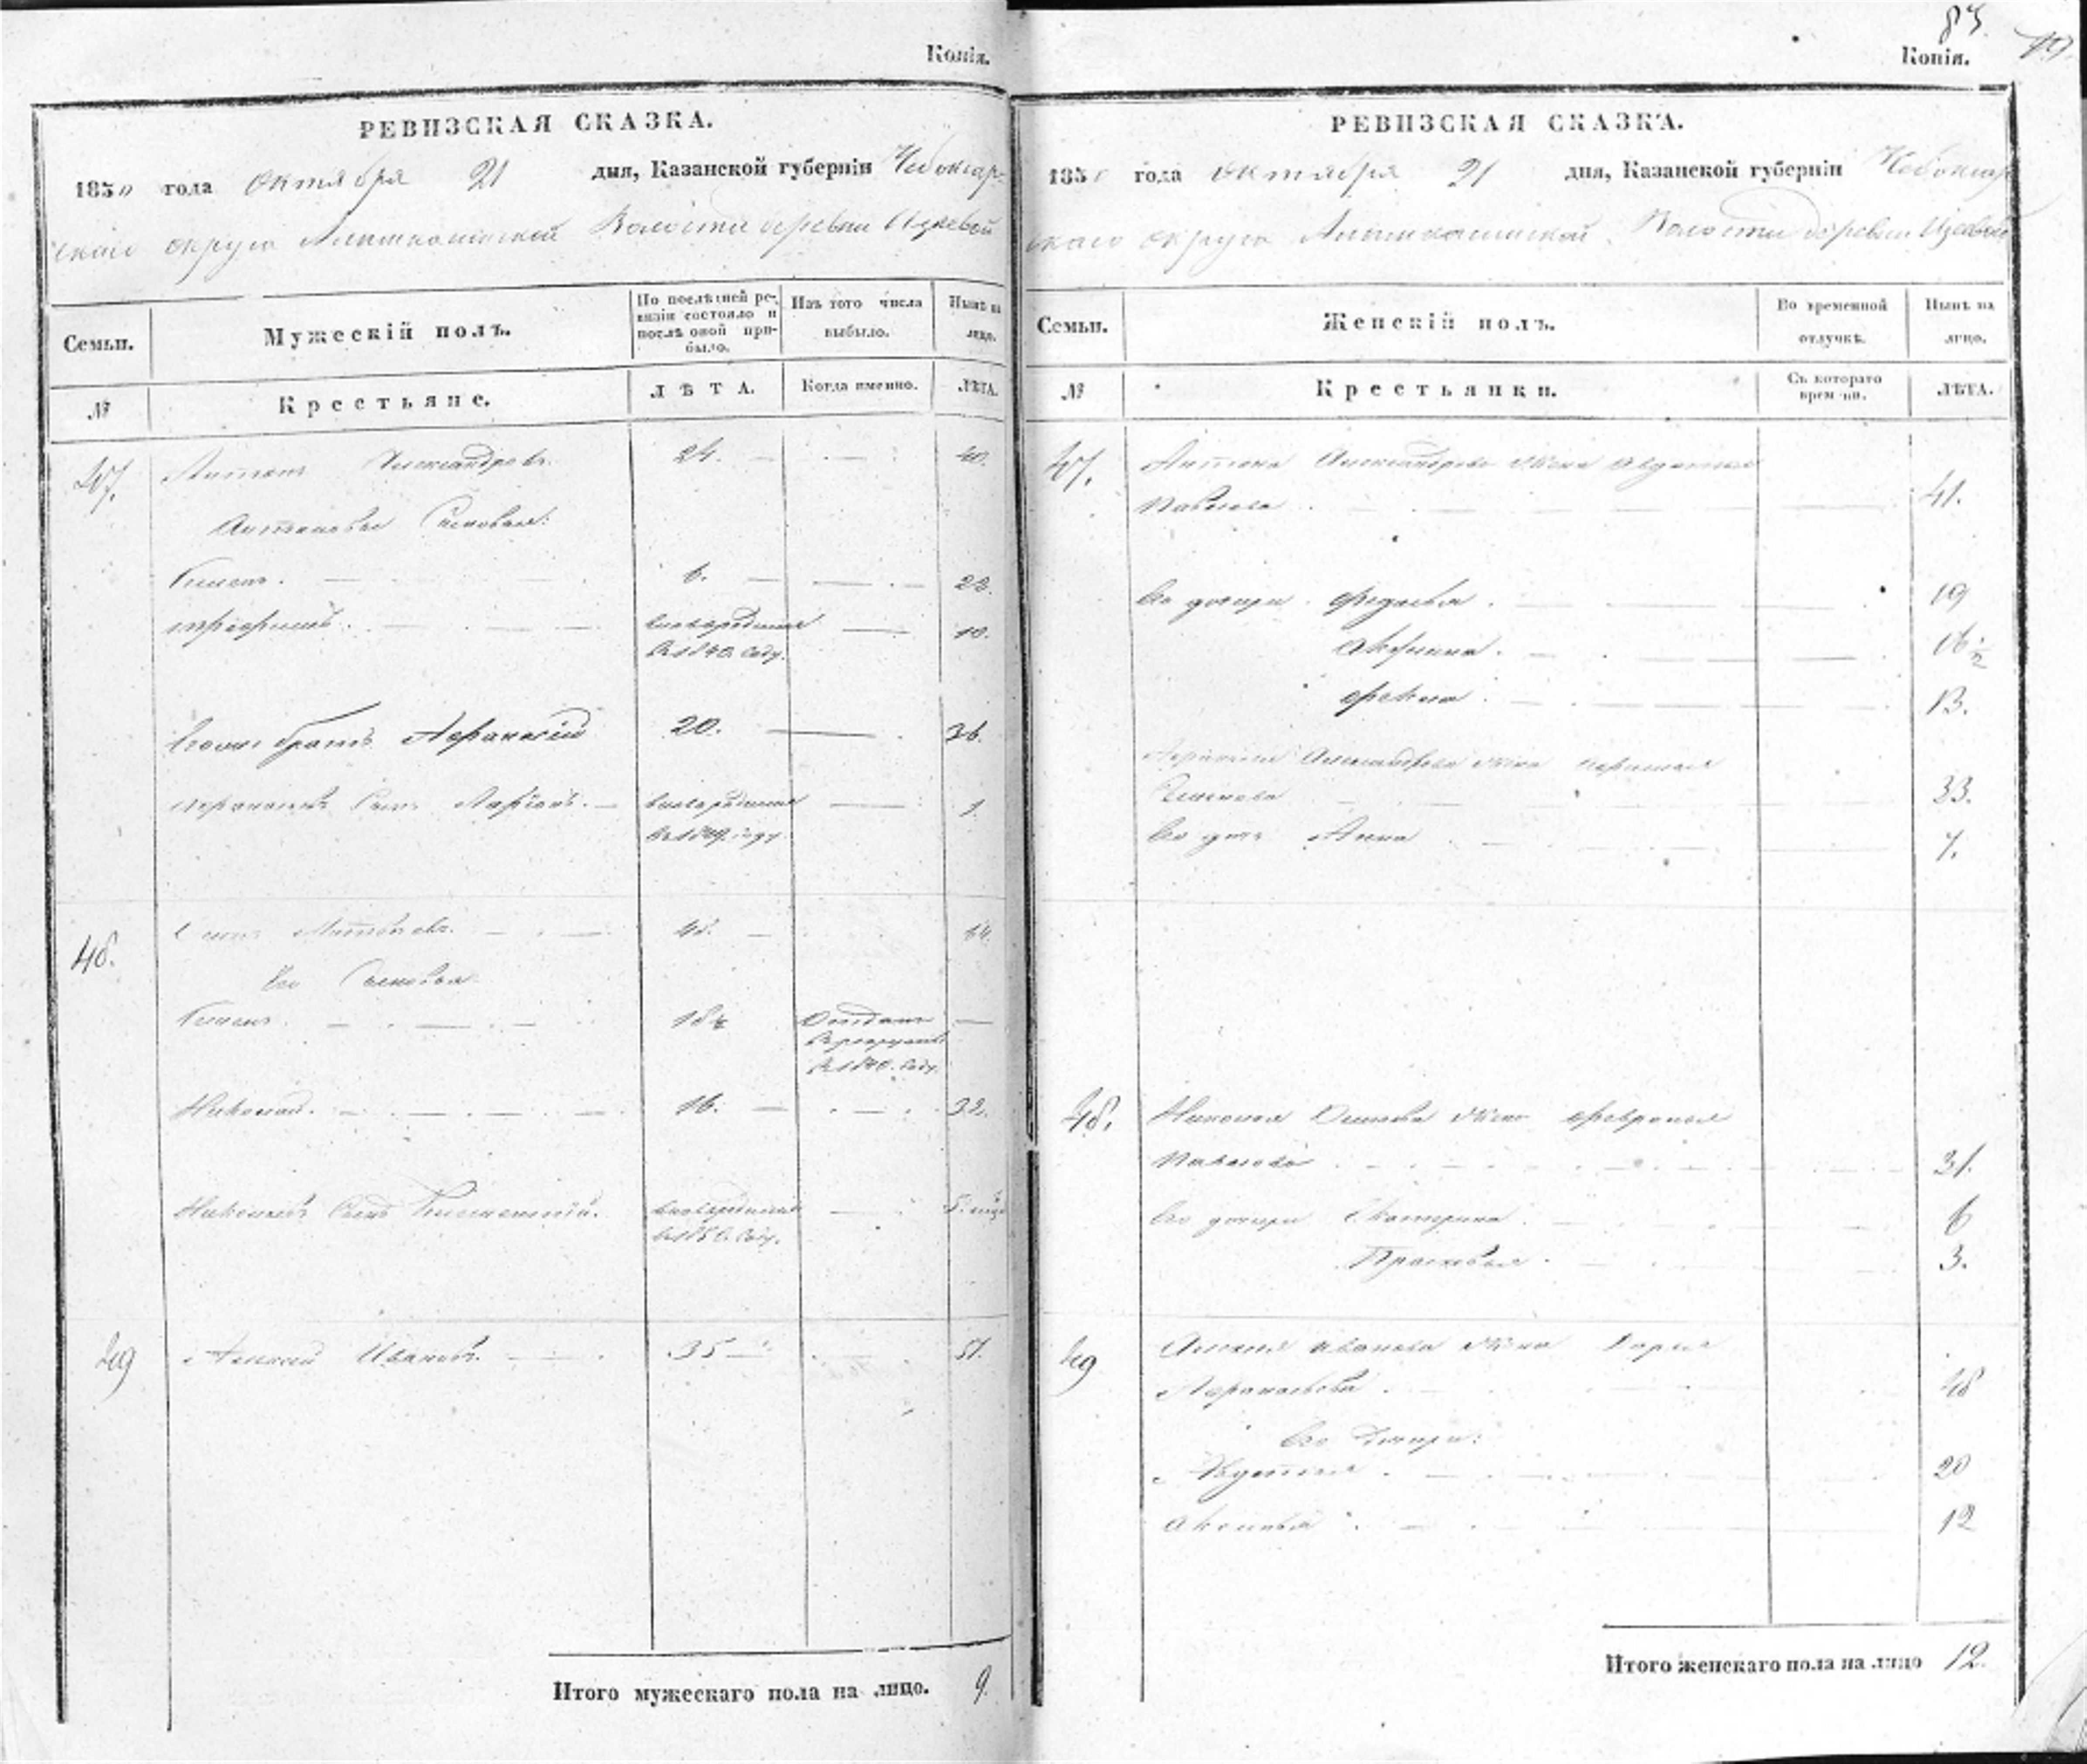 Копія.
РЕВИЗСКАЯ СКАЗКА.
1850 года Октября 21 дня, Казанской губерніи Чебоксар-
скаго округа Волости деревни
Семьи.
Мужескій полъ.
По послѣдней ре-
визіи состояло и
послѣ оной при-
было.
Изъ того числа
выбыло.
Нынѣ на
лицо.
№
Крестьяне.
ЛѢТА.
Когда именно.
ЛѢТА.
47. Антонъ Александровъ. 24. 40.
Антоновы Сыновья:
6. 22.
Трофимъ. новорожденный 10.
въ 1840 году.
братъ Афанасій 20. 36.
Афанасьевъ Сынъ новорожденный 1.
въ 1849 году
48. Матвѣевъ. 48. 64.
Его Сыновья
18½ Отданъ
въ рекруты
въ 1840 году.
Николай. 16. 32.
Николаевъ Сынъ новорожденный
въ 1850 году.
49 Алексей Ивановъ. 35 51.
Итого мужескаго пола на лицо. 9.
83. 19
Копія.
РЕВИЗСКАЯ СКАЗКА.
1850 года Октября 21 дня, Казанской губерніи Чебоксар
скаго округа Волости деревни
Семьи.
Женскій полъ.
Во временной
отлучкѣ.
Нынѣ на
лицо.
№
Крестьянки.
Съ котораго
времени.
ЛѢТА.
47. Антона Александрова жена Авдотья
Павлова 41.
Его дочери Федосья. 19
Акулина. 16½
Фекла. 13.
Афанасья Александрова жена
Семенова 33.
Его дочь Анна 7.
48. Николая Осипова жена Феврония
Павлова 31.
Его дочери Екатерина 6
Прасковья 3.
49 Алексея Иванова жена Дарья
Афанасьева. 48
Его дочери:
Авдотья. 20
Аксинья 12
Итого женскаго пола на лицо 12.